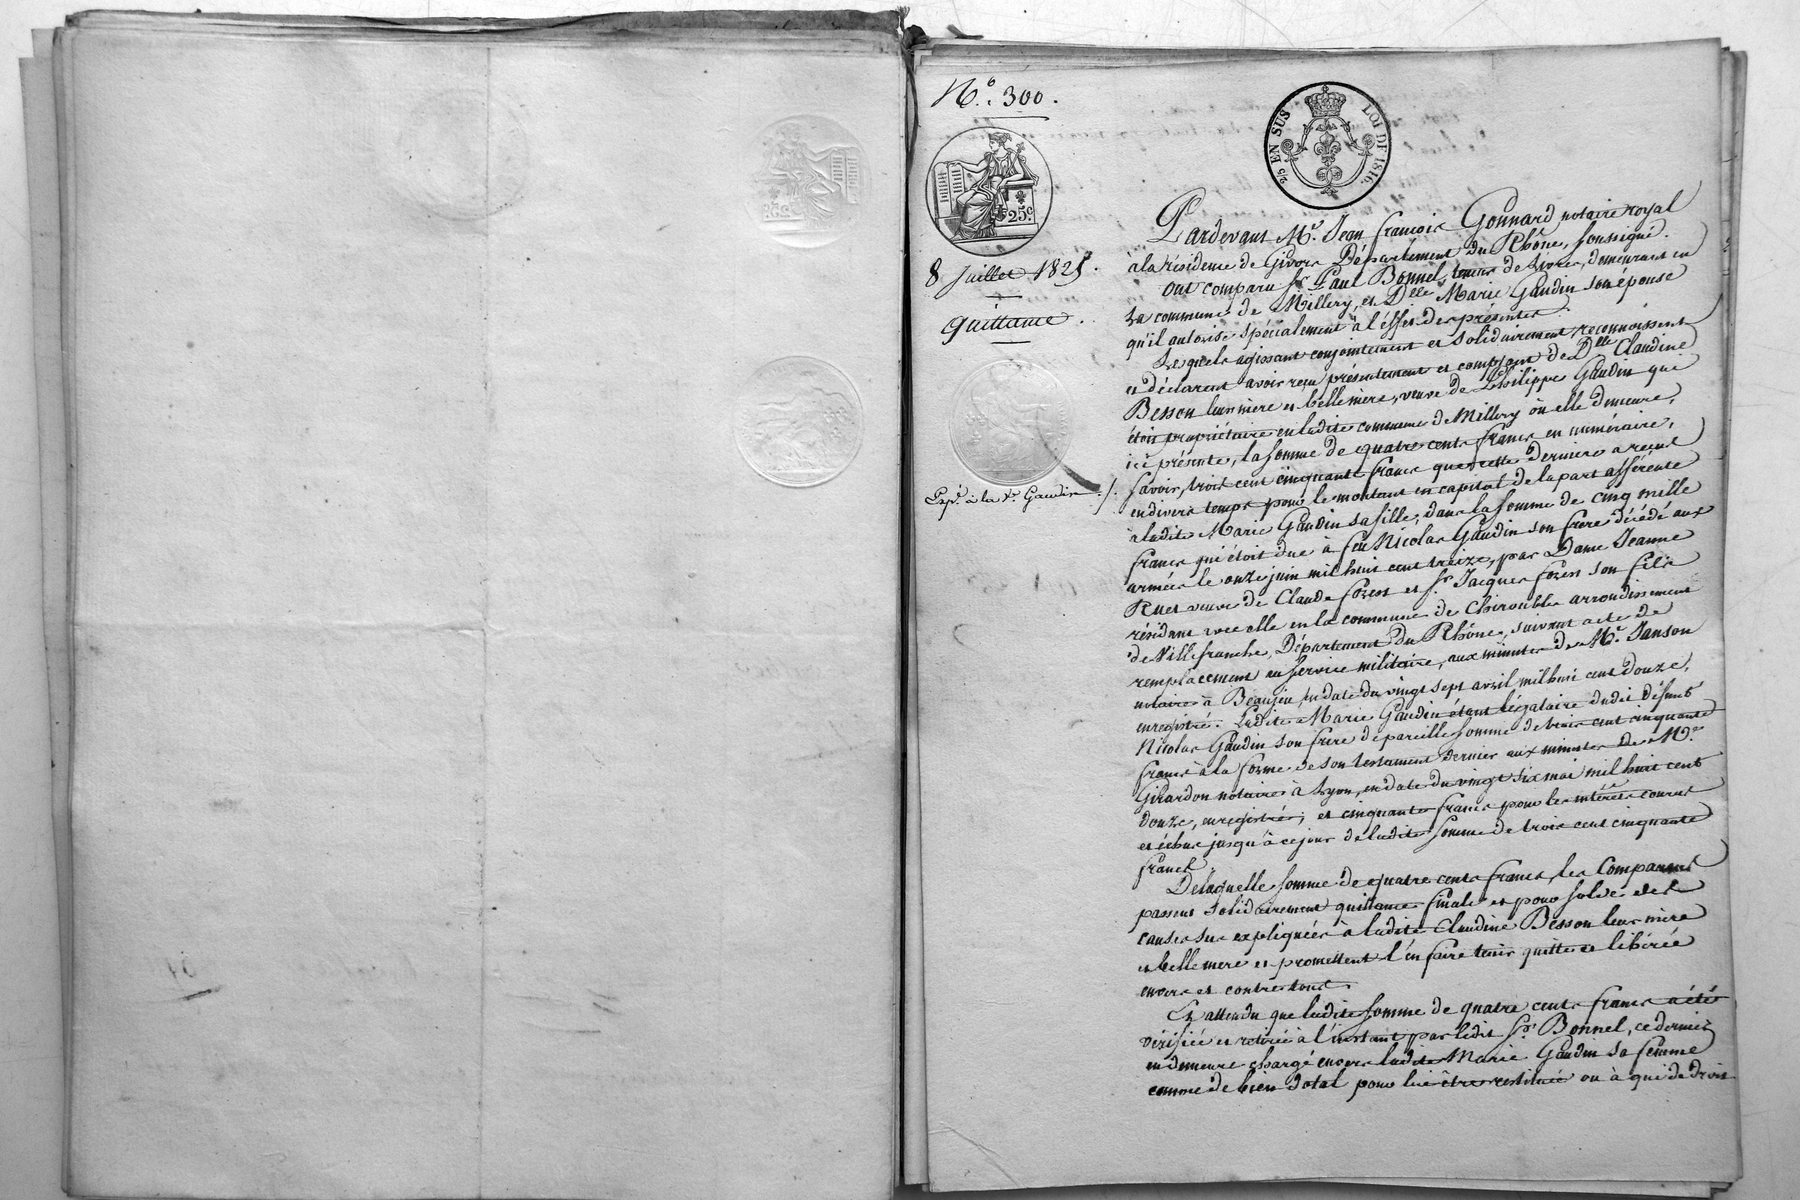 N.° 300.
2/5 EN SUS
LOI DE 1816.
25c
8 Juillet 1825.
quittance.
Exp.n à la Ve Gaudin ./.
Pardevant Me. Jean françois Gonnard notaire royal
à la résidence de Givors Département du Rhône, soussigné.
Ont comparu Sr. Paul Bonnel, teneur de livres, demeurant en
la commune de Millery, et Delle Marie Gaudin son épouse
qu'il autorise spécialement à l'effet des présentes.
Lesquels agissant conjointement et solidairement reconnoissent
et déclarent avoir reçu présentement et comptant de Delle Claudine
Besson leur mère et belle mère, veuve de Philippe Gaudin qui
étoit propriétaire en ladite commune de Millery où elle demeure,
ici présente, la somme de quatre cents francs en numéraire,
savoir, trois cent cinquante francs que cette dernière a reçus
en divers temps pour le montant en capital de la part afférente
à ladite Marie Gaudin sa fille, dans la somme de cinq mille
francs qui étoit due à feu Nicolas Gaudin son frère décédé aux
armées le onze juin mil huit cent treize, par Dame Jeanne
Ruet veuve de Claude forest et Sr. Jacques forest son fils
résidant avec elle en la commune de Chiroubles arrondissement
de Villefranche, Département du Rhône, suivant acte de
remplacement au service militaire, aux minutes de Me. Janson
notaire à Beaujeu, en date du vingt sept avril mil huit cent douze,
enregistré. Ladite Marie Gaudin étant légataire dudit défunt
Nicolas Gaudin son frère de pareille somme de trois cent cinquante
francs à la forme de son testament dernier aux minutes de Me.
Girardon notaire à Lyon, en date du vingt six mai mil huit cent
douze, enregistré; et cinquante francs pour les intérêts courus
et échus jusqu'à ce jour de ladite somme de trois cent cinquante
francs.
De laquelle somme de quatre cents francs, les Comparants
passent solidairement quittance finale et pour solde des
causes sus expliquées à ladite Claudine Besson leur mère
et belle mère et promettent l'en faire tenir quitte et libérée
envers et contre tous.
Et attendu que ladite somme de quatre cents francs a été
vérifiée et retirée à l'instant par ledit Sr. Bonnel, ce dernier
en demeure chargé envers ladite Marie Gaudin sa femme
comme de bien dotal pour lui être restituée ou à qui de droit